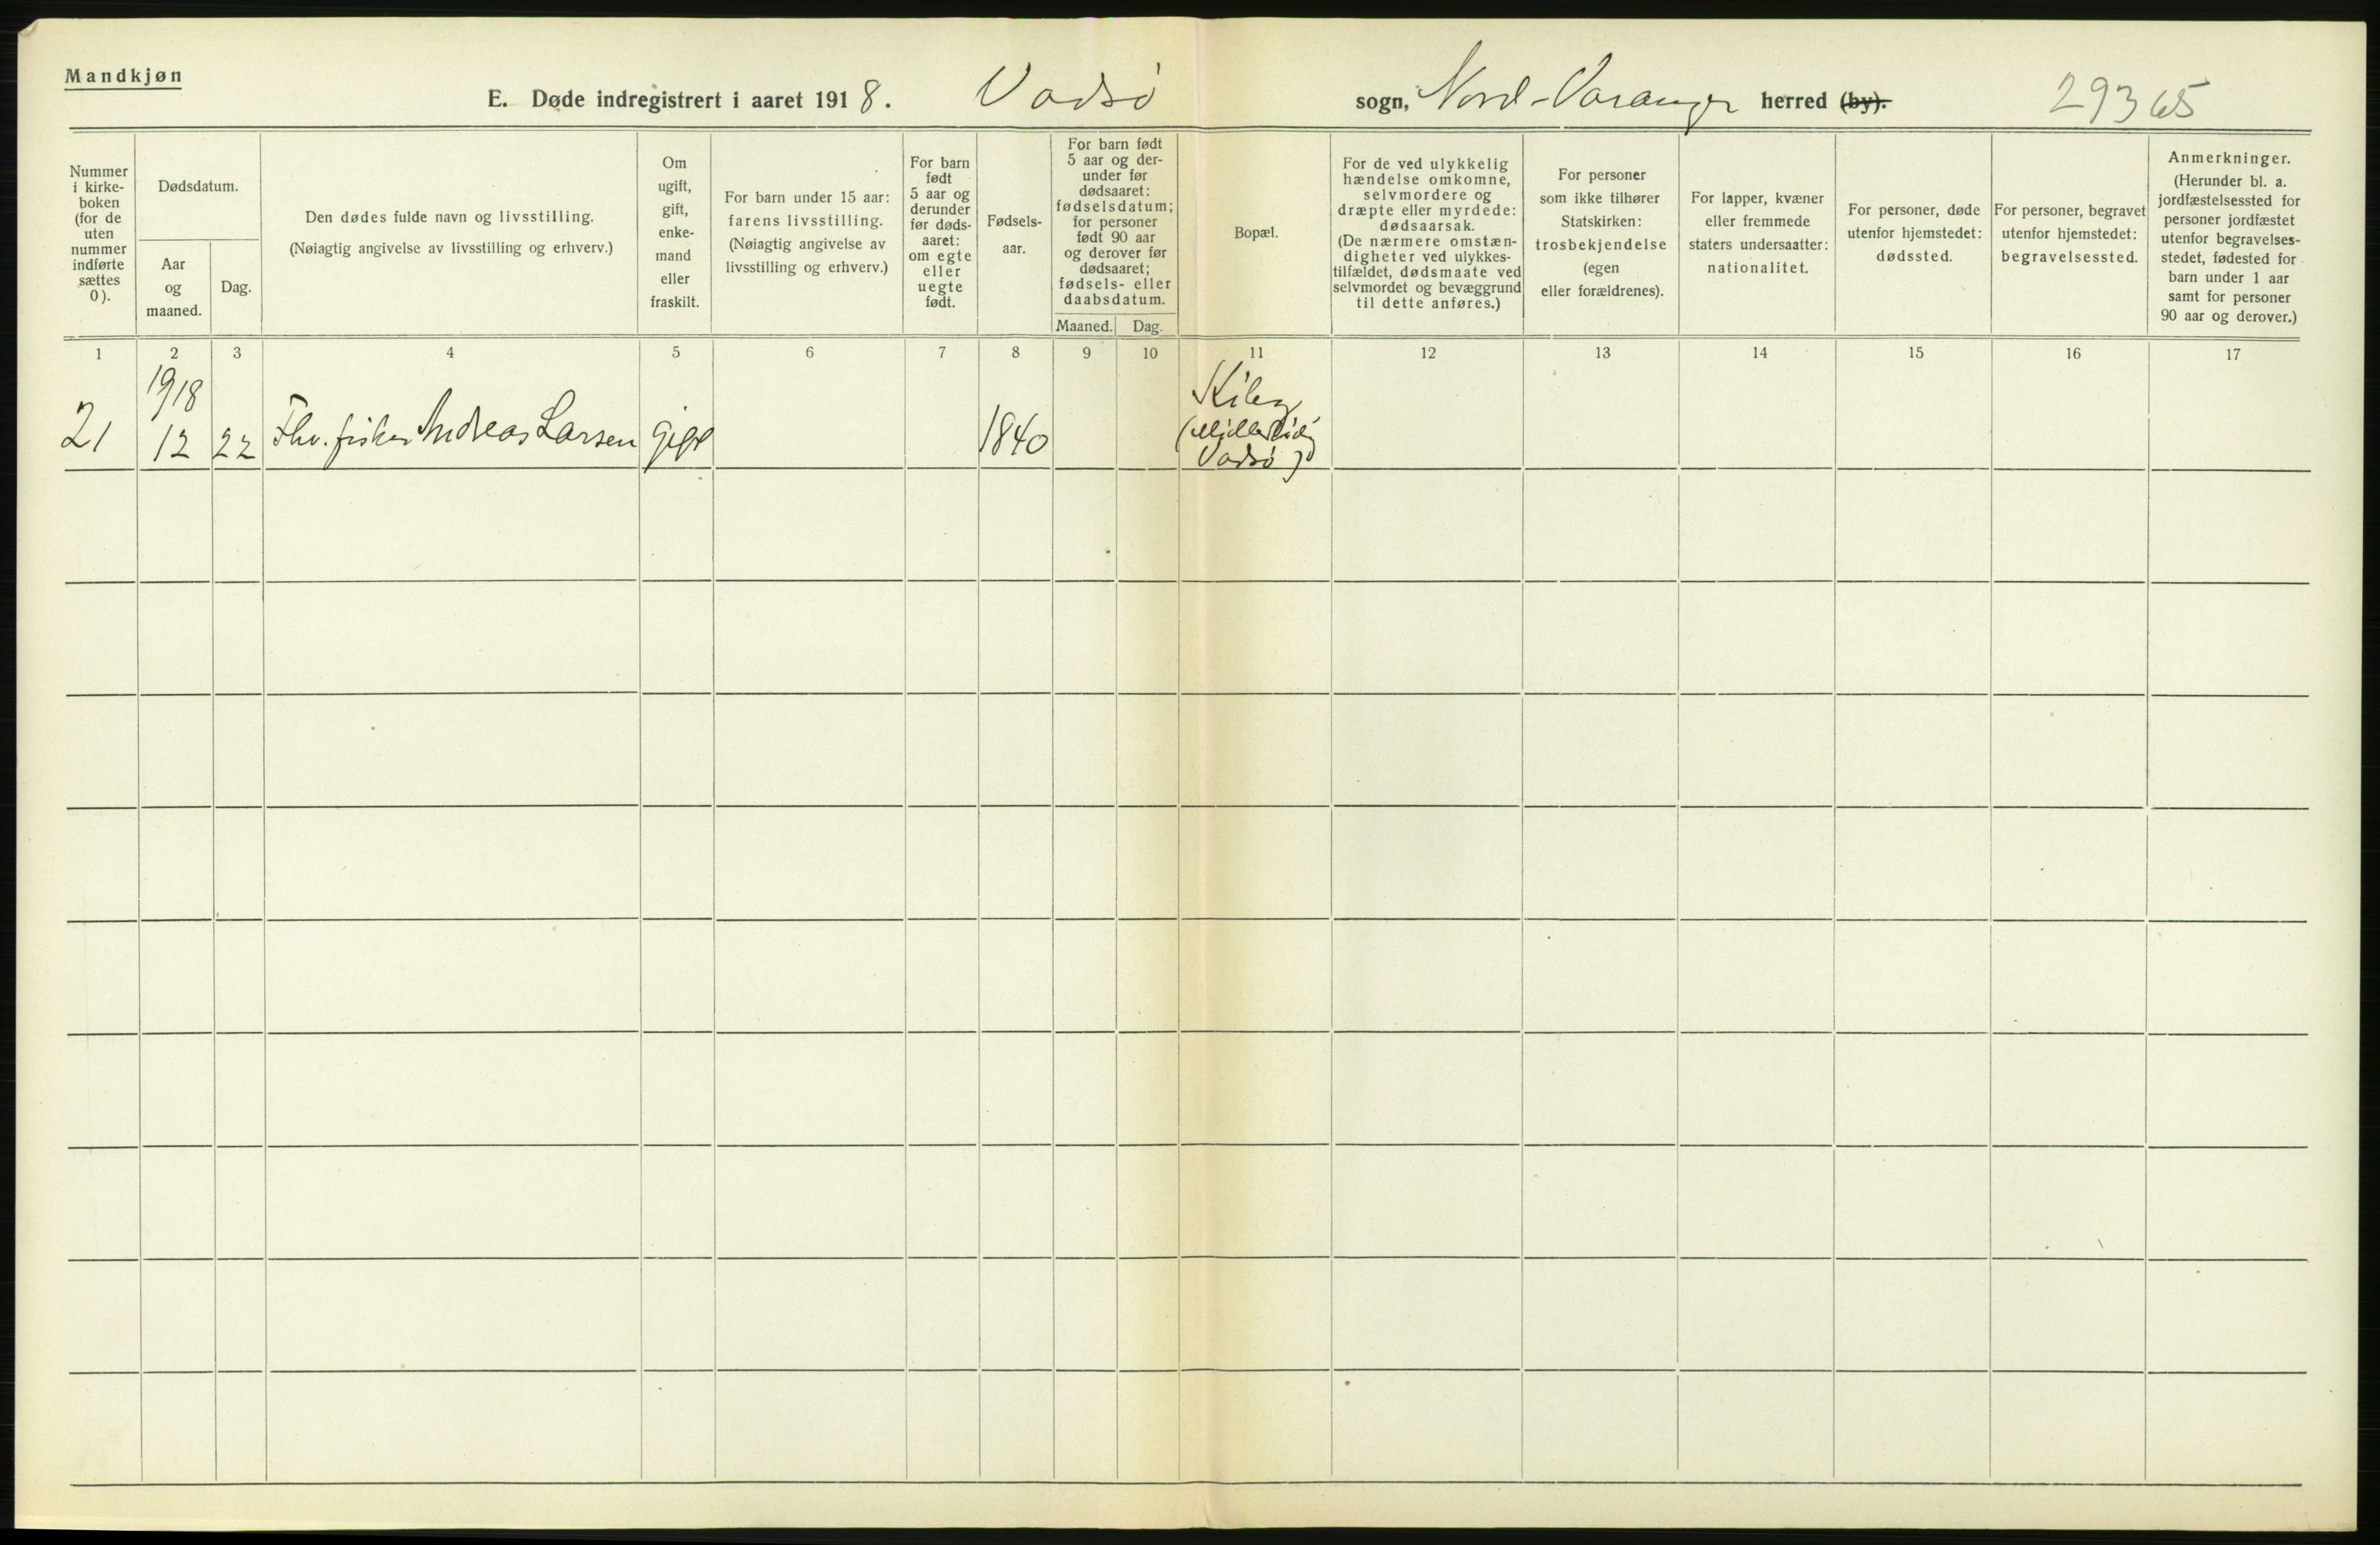 Mandkjøn
E. Døde indregistrert i aaret 1918. Vadsø sogn, Nord-Varanger herred (by). 29365
Nummer
i kirke-
boken
(for de
uten
nummer
indførte
sættes
0).
Dødsdatum.
Aar
og
maaned.
Dag.
Den dødes fulde navn og livsstilling.
(Nøiagtig angivelse av livsstilling og erhverv.)
Om
ugift,
gift,
enke-
mand
eller
fraskilt.
For barn under 15 aar:
farens livsstilling.
(Nøiagtig angivelse av
livsstilling og erhverv.)
For barn
født
5 aar og
derunder
før døds-
aaret:
om egte
eller
uegte
født.
Fødsels-
aar.
For barn født
5 aar og der-
under før
dødsaaret:
fødselsdatum;
for personer
født 90 aar
og derover før
dødsaaret;
fødsels- eller
daabsdatum.
Maaned. Dag.
Bopæl.
For de ved ulykkelig
hændelse omkomne,
selvmordere og
dræpte eller myrdede:
dødsaarsak.
(De nærmere omstæn-
digheter ved ulykkes-
tilfældet, dødsmaate ved
selvmordet og bevæggrund
til dette anføres.)
For personer
som ikke tilhører
Statskirken:
trosbekjendelse
(egen
eller forældrenes).
For lapper, kvæner
eller fremmede
staters undersaatter:
nationalitet.
For personer, døde
utenfor hjemstedet:
dødssted.
For personer, begravet
utenfor hjemstedet:
begravelsessted.
Anmerkninger.
(Herunder bl. a.
jordfæstelsessted for
personer jordfæstet
utenfor begravelses-
stedet, fødested for
barn under 1 aar
samt for personer
90 aar og derover.)
1 2 3 4 5 6 7 8 9 10 11 12 13 14 15 16 17
1918
21 12 22 Fhv. fisker Andreas Larsen gift 1840
Kiberg
Vadsø)